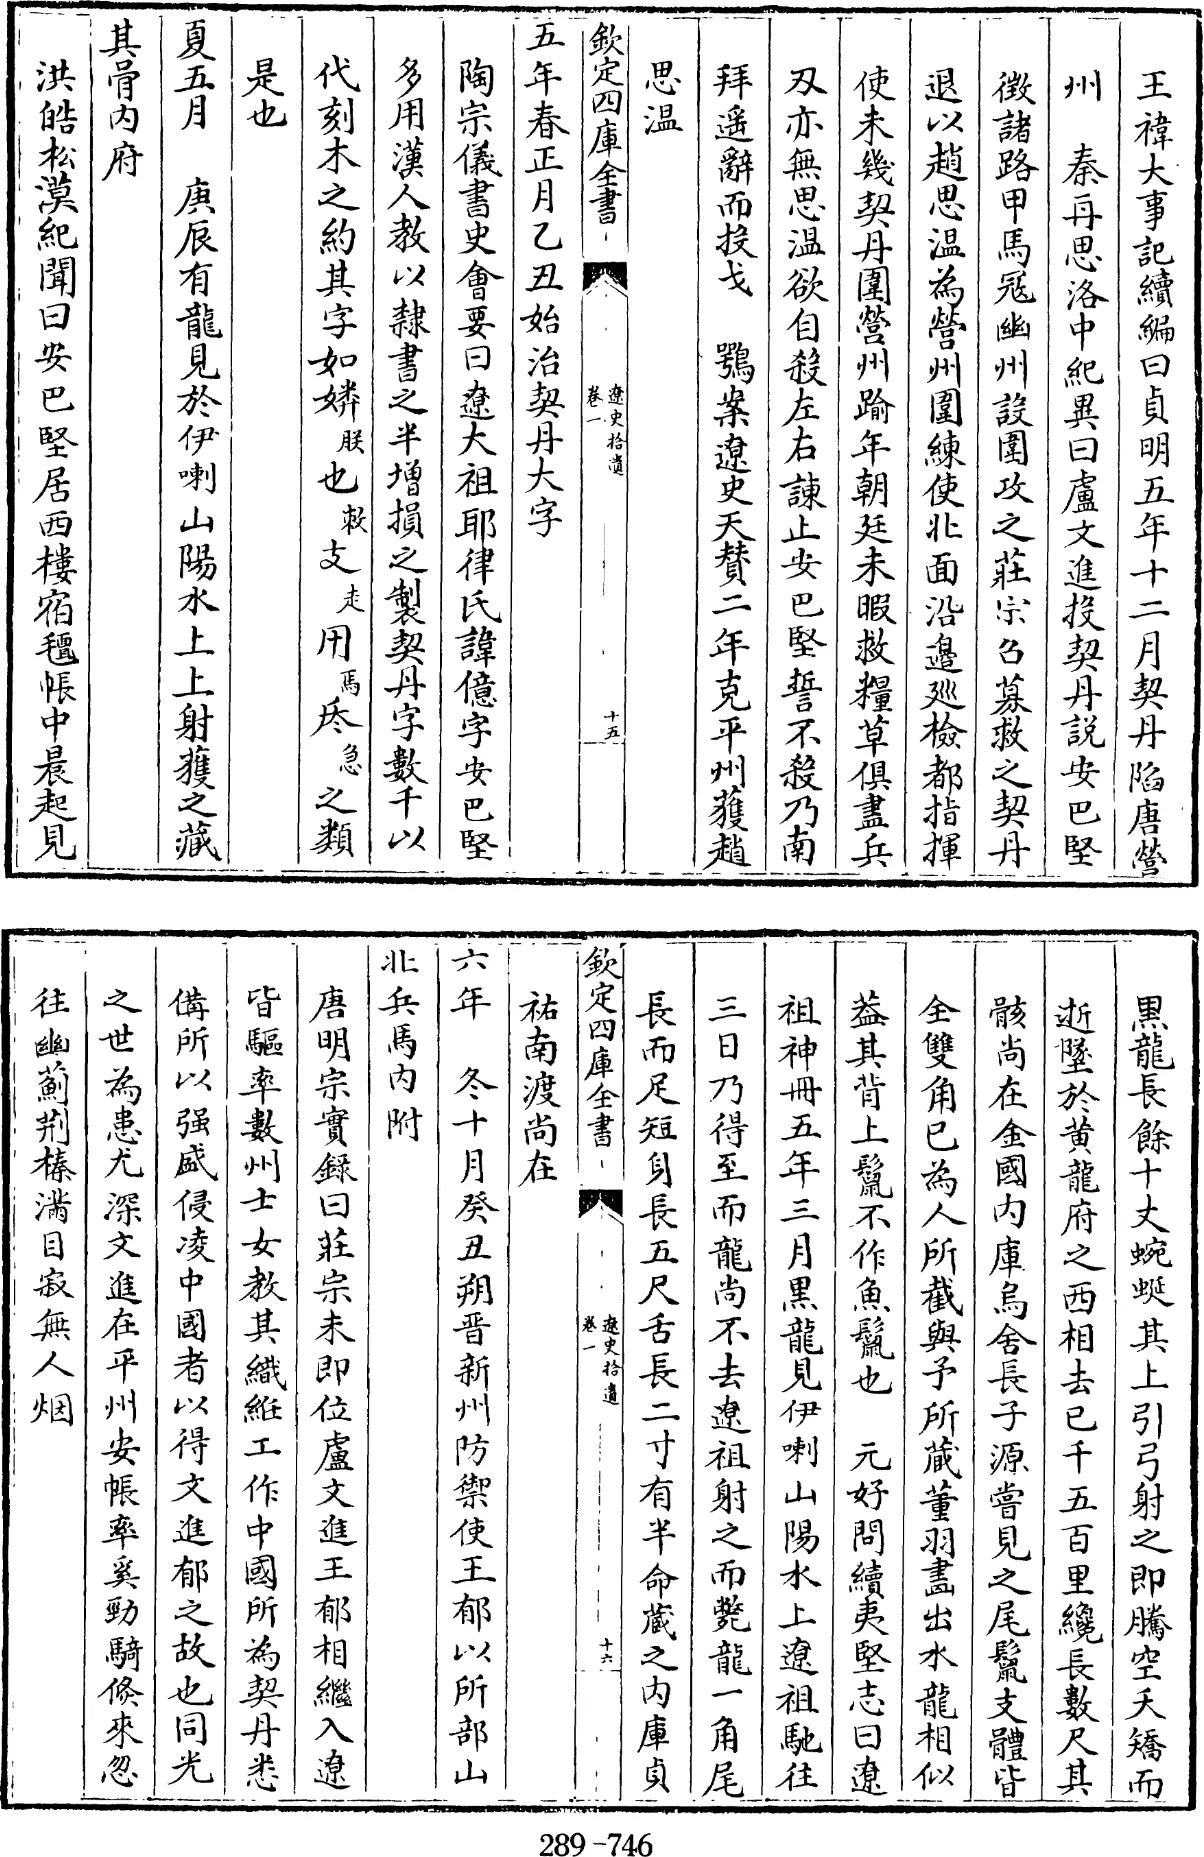 王禕大事記續編曰貞明五年十二月契丹陷唐營
州　秦再思洛中紀異曰盧文進投契丹説安巴堅
徵諸路甲馬冦幽州設圍攻之莊宗召募救之契丹
退以趙思温為營州團練使北面沿邉廵檢都指揮
使未幾契丹圍營州踰年朝廷未暇救糧草俱盡兵
刄亦無思温欲自殺左右諫止安巴堅誓不殺乃南
拜遥辭而投戈　鶚案遼史天贊二年克平州獲趙
思温
欽定四庫全書
遼史拾遺
卷一
十五
五年春正月乙丑始治契丹大字
陶宗儀書史會要曰遼太祖耶律氏諱億字安巴堅
多用漢人教以隸書之半增損之製契丹字數千以
代刻木之約其字如㷠朕也敕支走用馬㶡急之類
是也
夏五月　庚辰有龍見於伊喇山陽水上上射獲之藏
其骨内府
洪皓松漠紀聞曰安巴堅居西樓宿氊帳中晨起見
黒龍長餘十丈蜿蜒其上引弓射之即騰空夭矯而
逝墜於黄龍府之西相去已千五百里纔長數尺其
骸尚在金國内庫烏舍長子源嘗見之尾鬛支體皆
全雙角已為人所截與予所藏董羽畵出水龍相似
葢其背上鬛不作魚鬛也　元好問續夷堅志曰遼
祖神冊五年三月黒龍見伊喇山陽水上遼祖馳往
三日乃得至而龍尚不去遼祖射之而斃龍一角尾
長而足短身長五尺舌長二寸有半命藏之内庫貞
欽定四庫全書
遼史拾遺
卷一
十六
祐南渡尚在
六年　冬十月癸丑朔晋新州防禦使王郁以所部山
北兵馬内附
唐明宗實録曰莊宗未即位盧文進王郁相繼入遼
皆驅率數州士女教其織絍工作中國所為契丹悉
備所以强盛侵凌中國者以得文進郁之故也同光
之世為患尤深文進在平州安帳率奚勁騎倐來忽
往幽薊荆榛滿目寂無人烟
289-746